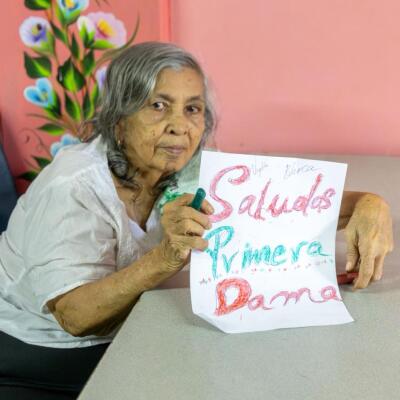 Saludos
Primera
Dama